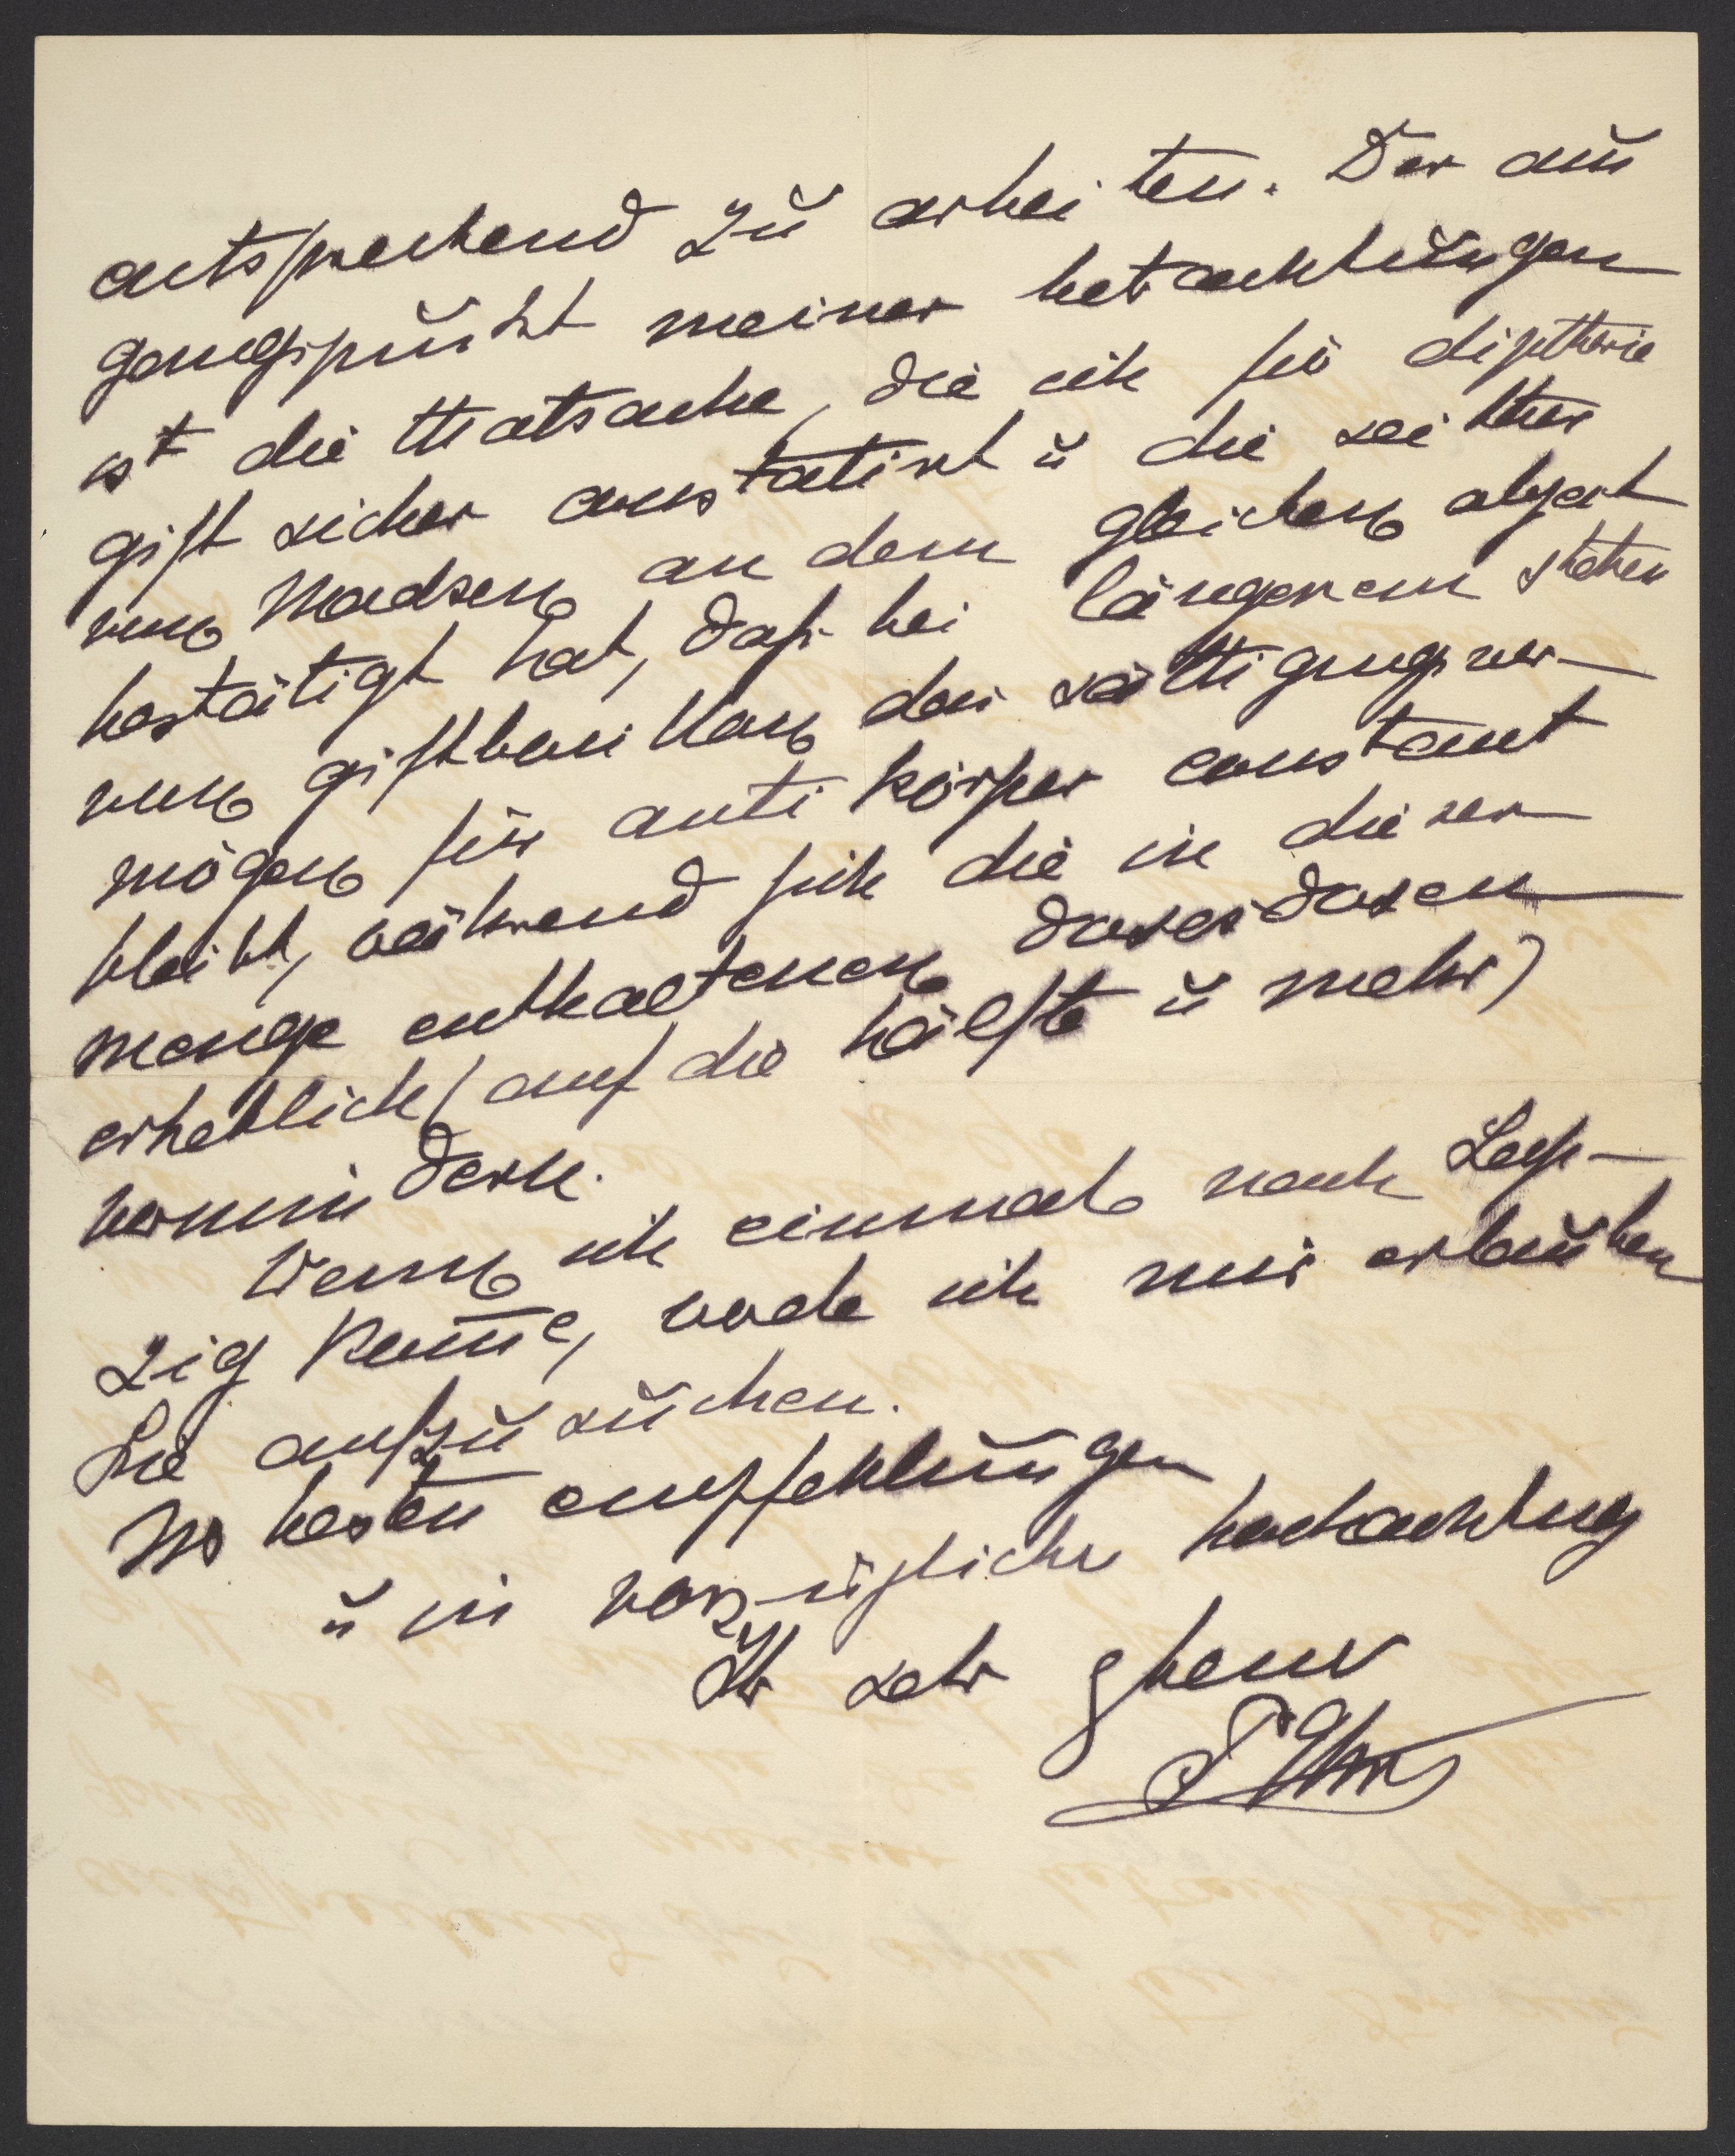 entsprechend zu arbeiten. Der aus
gangspunkt meiner betrachtungen
ist die thatsache, die ich für diptherie
gift sicher constatirt u die seither
von Madsen an dem gleichen object
bestätigt hat, daß bei längerem stehen
von giftbouillon das sättigungsver-
mögen für antikörper constant
bleibt, während sich die in dieser
menge enthaltenen dosen
erheblich (auf die hälfte u mehr)
vermindern.
Wenn ich einmal nach Leip-
zig kom̅e, werde ich mir erlauben
Sie aufzusuchen.
Mit besten empfehlungen
u in vorzüglicher hochachtung
Ihr sehr